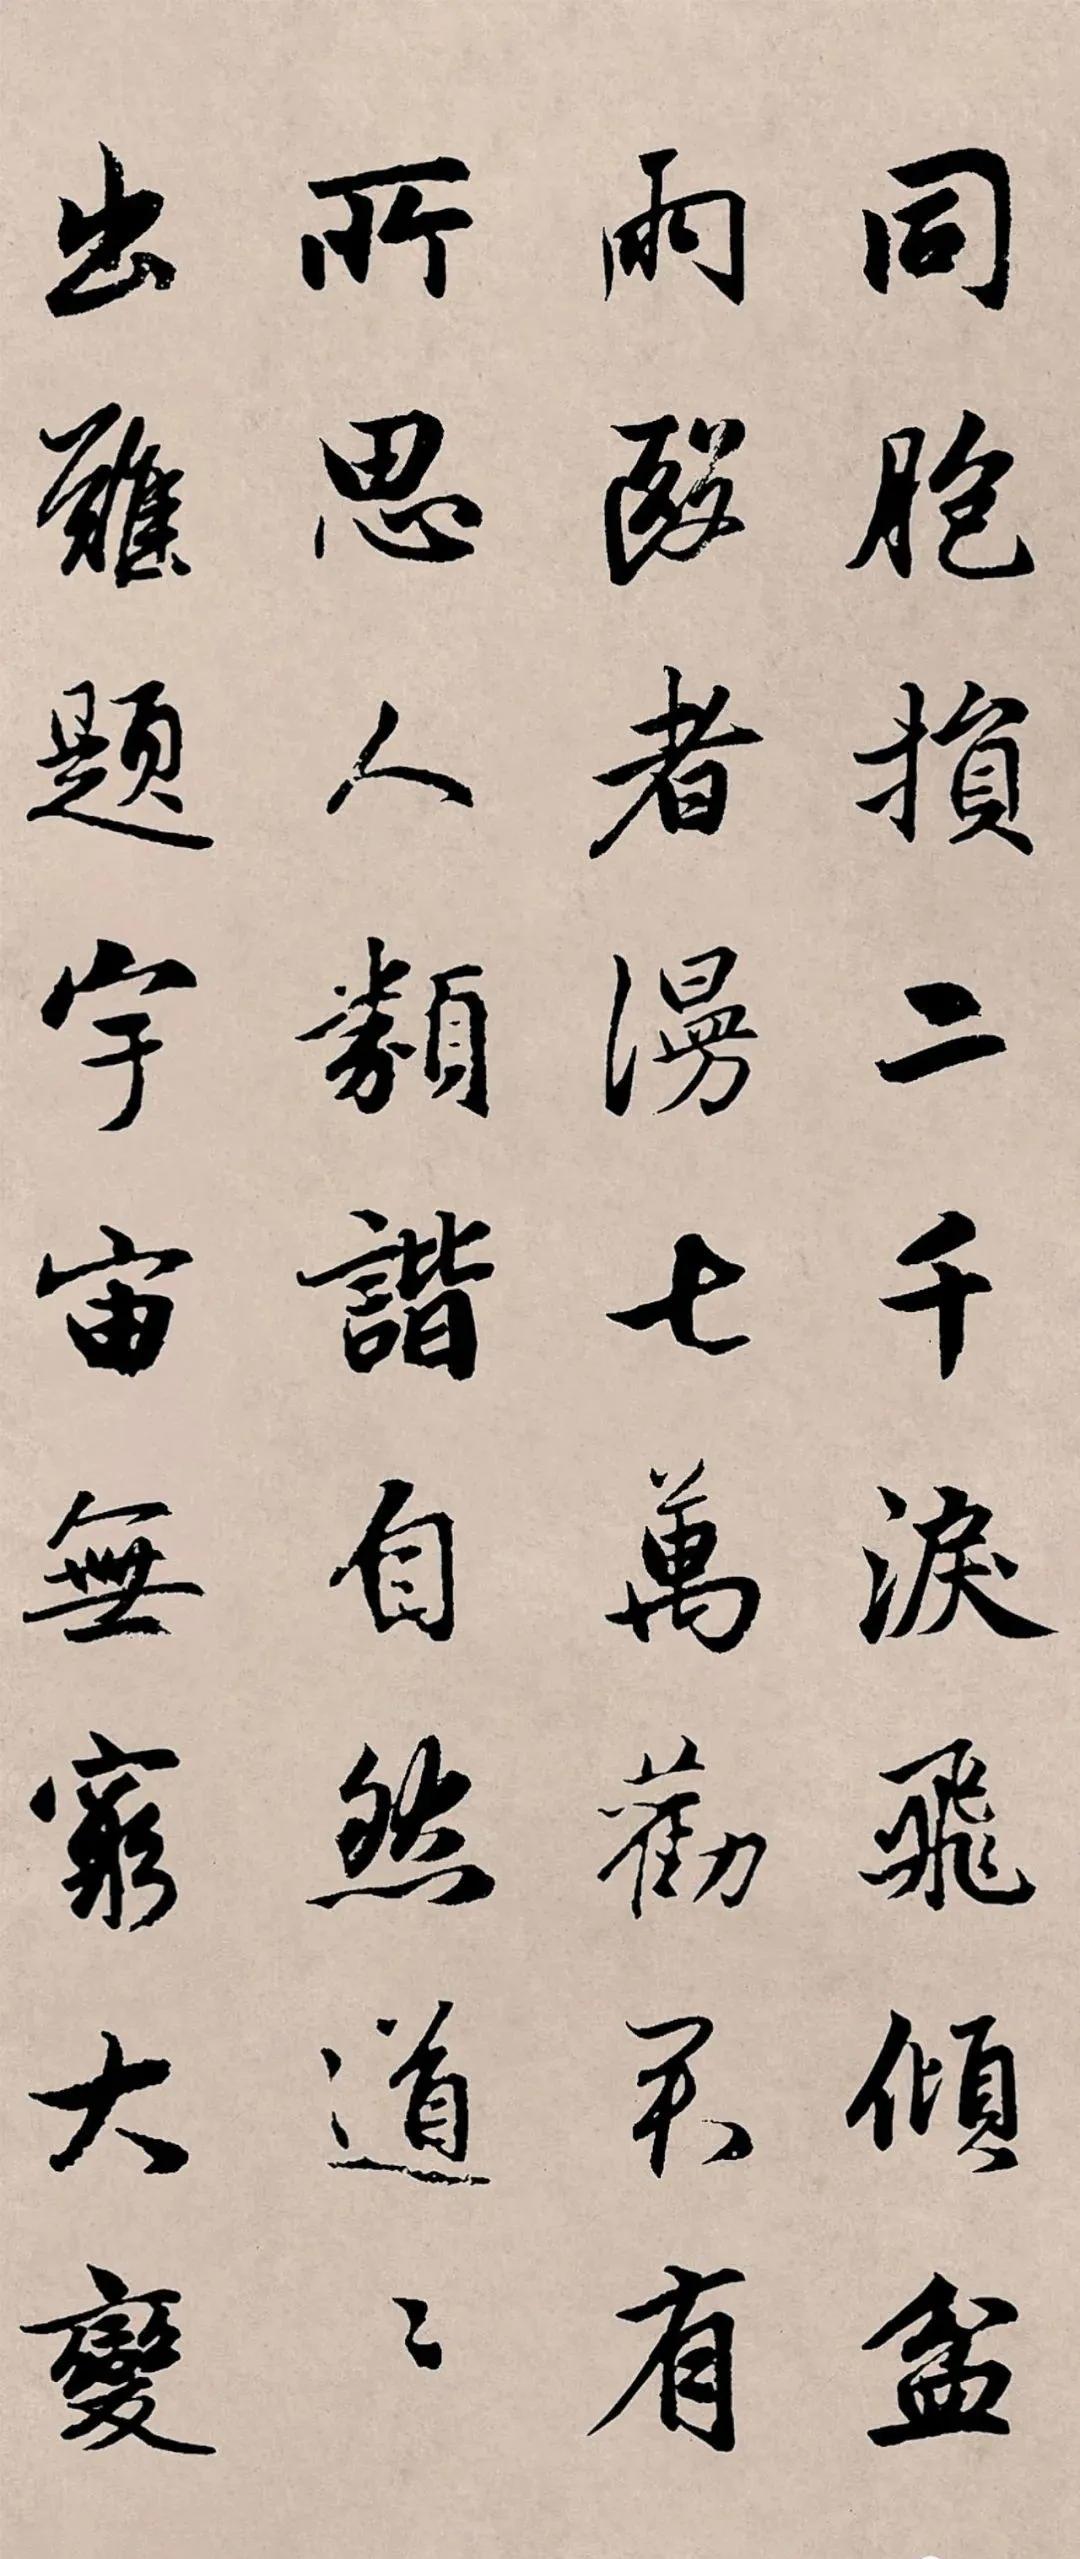 同胞損二千淚飛傾盆
雨殹者漫七萬勸有
所思人類諧自然道〻
出難題宇宙無窮大變